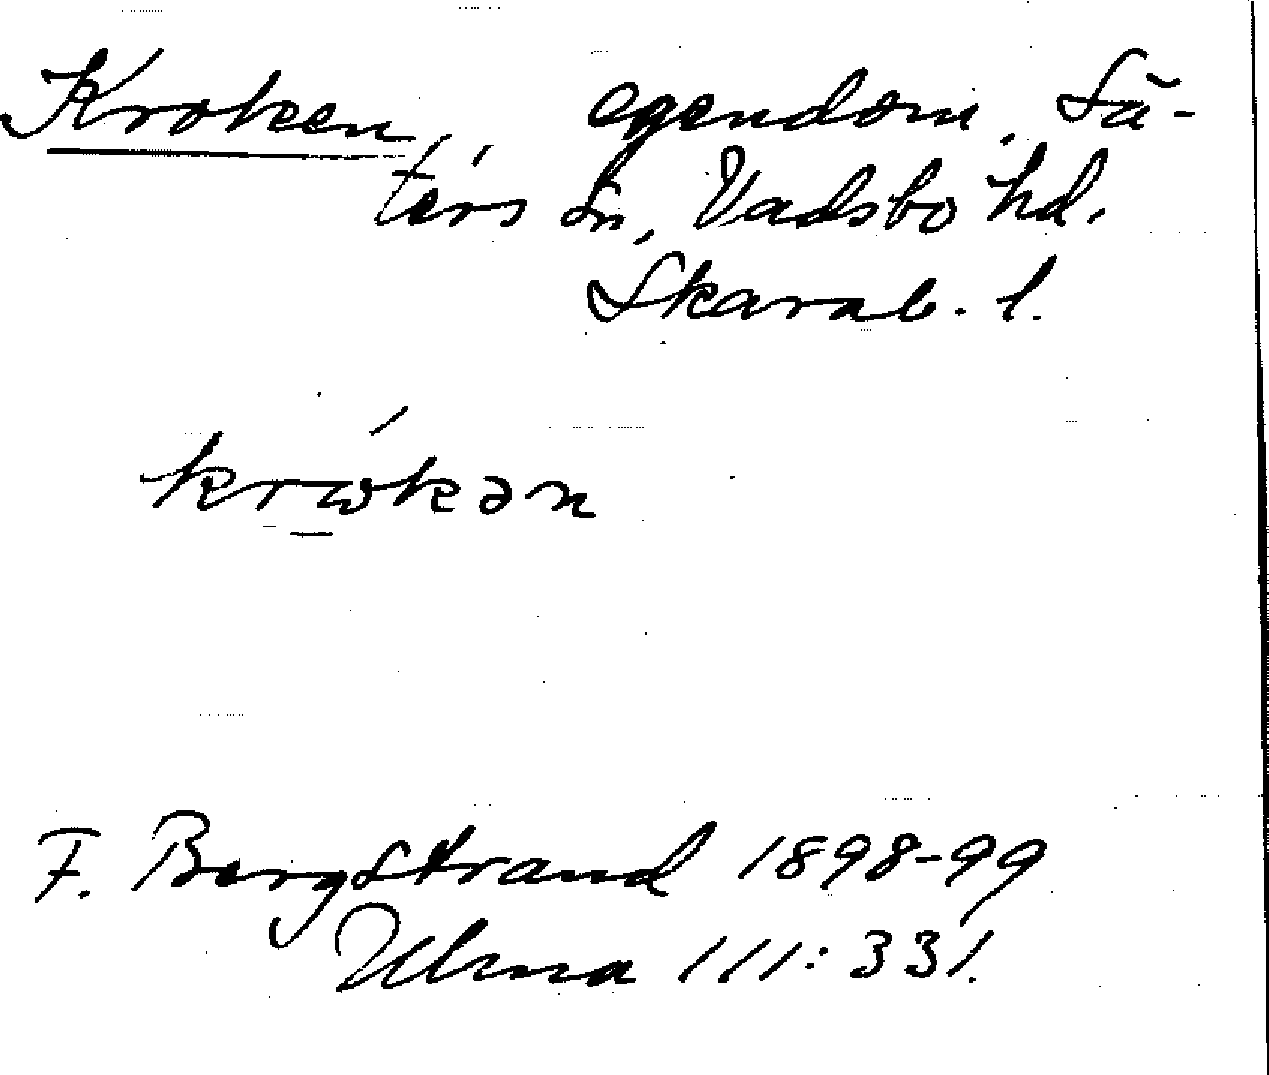 Kroken, egendom, Sä-
ters sn, Vadsbo hd.
Skarab. l.
krωkən
F. Bergstrand 1898-99
Ulma 111:331.